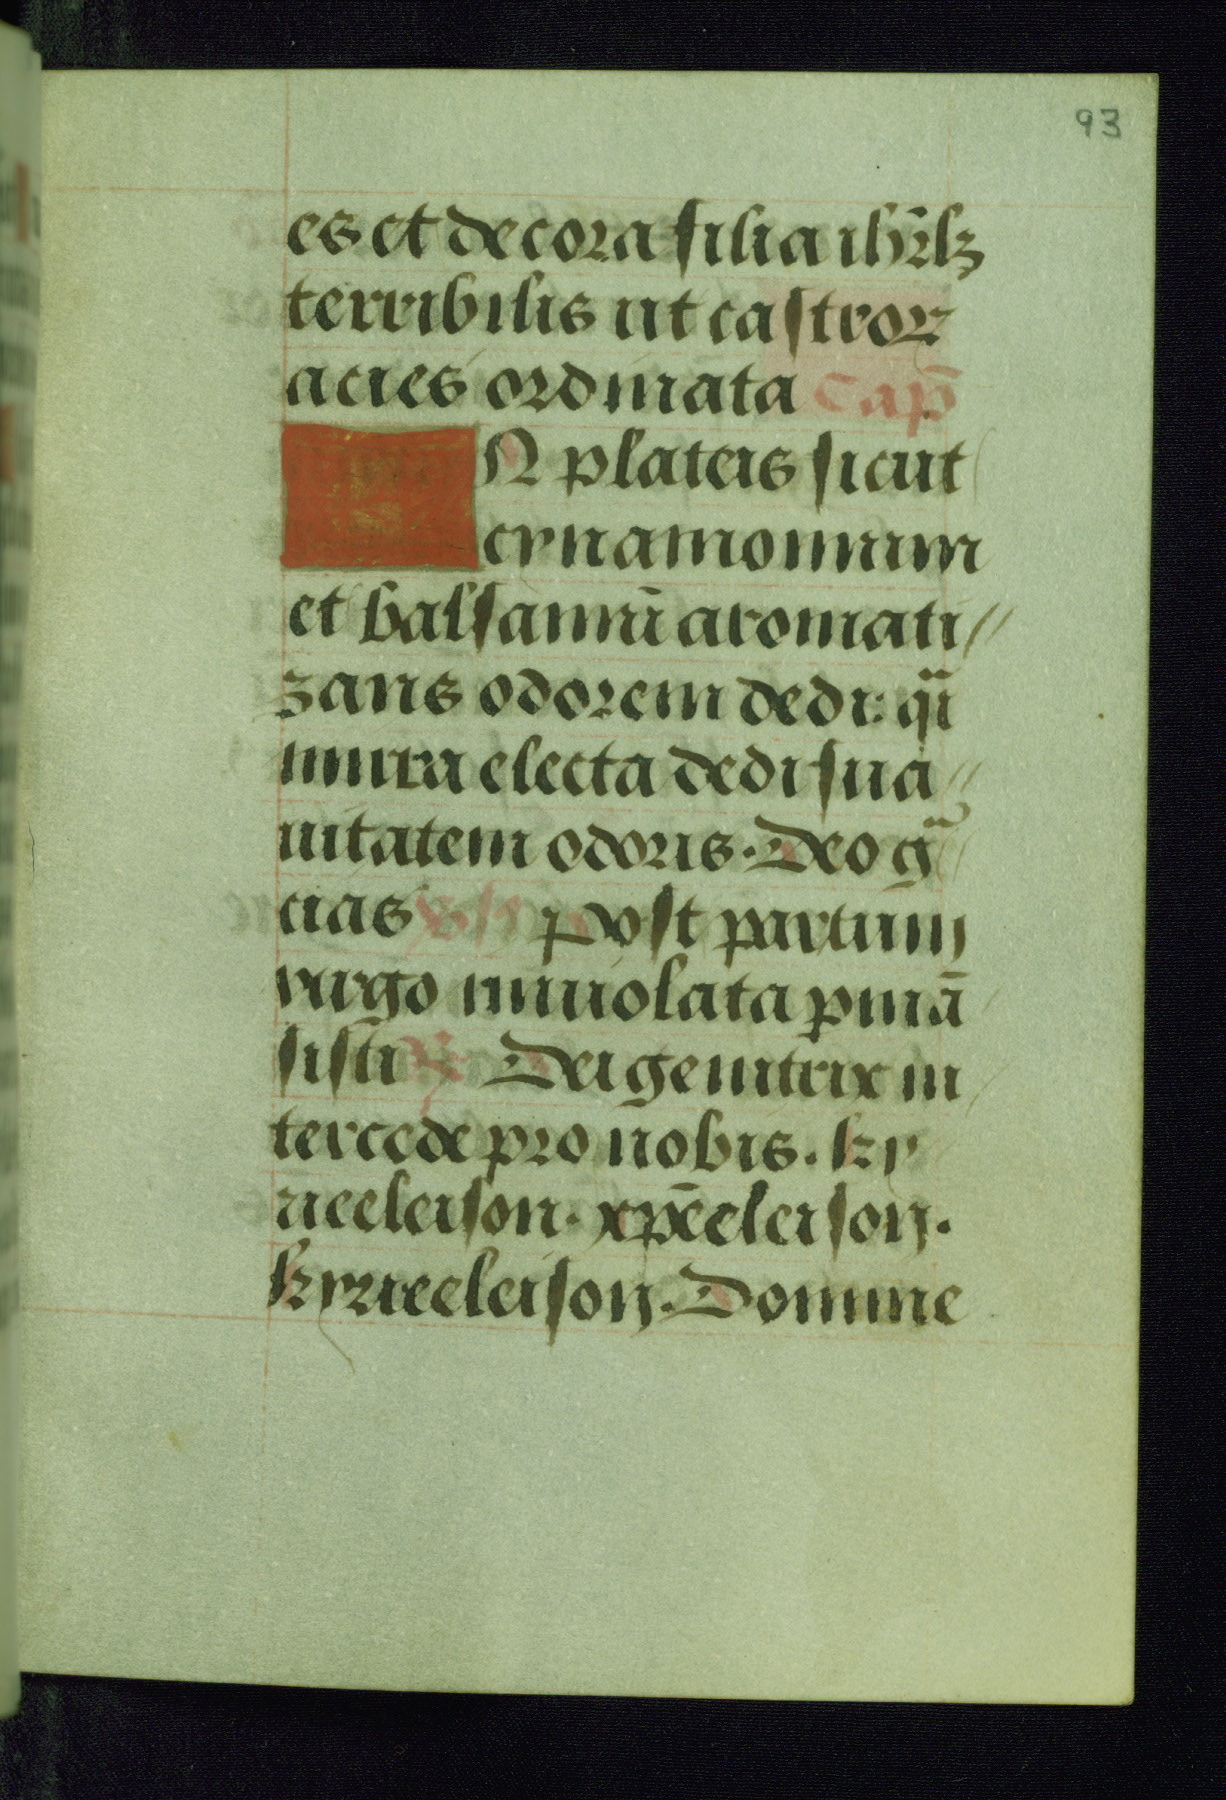 93
es et decora filia ihr̄lʒ
terribilis ut castroꝝ
acies ordinata Cap̄
IN plateis sicut
cynamomum
et balsamū aromati//
zans odorem dedi: q̄i
mirra electa dedi sua//
uitatem odoris. Deo gͣ
cias Post partum
virgo inuiolata ꝑmā
sisti ℟ Dei genitrix in
tercede pro nobis. ky
rieeleison. xp̄eeleison.
kyrieeleison. Domine